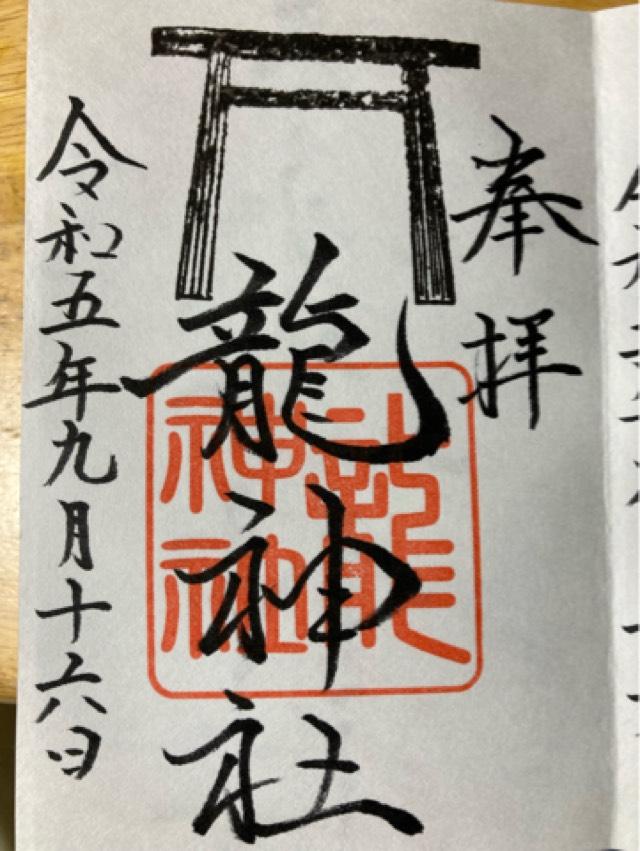 奉拝
龍神社
龍
神社
令和五年九月十六日